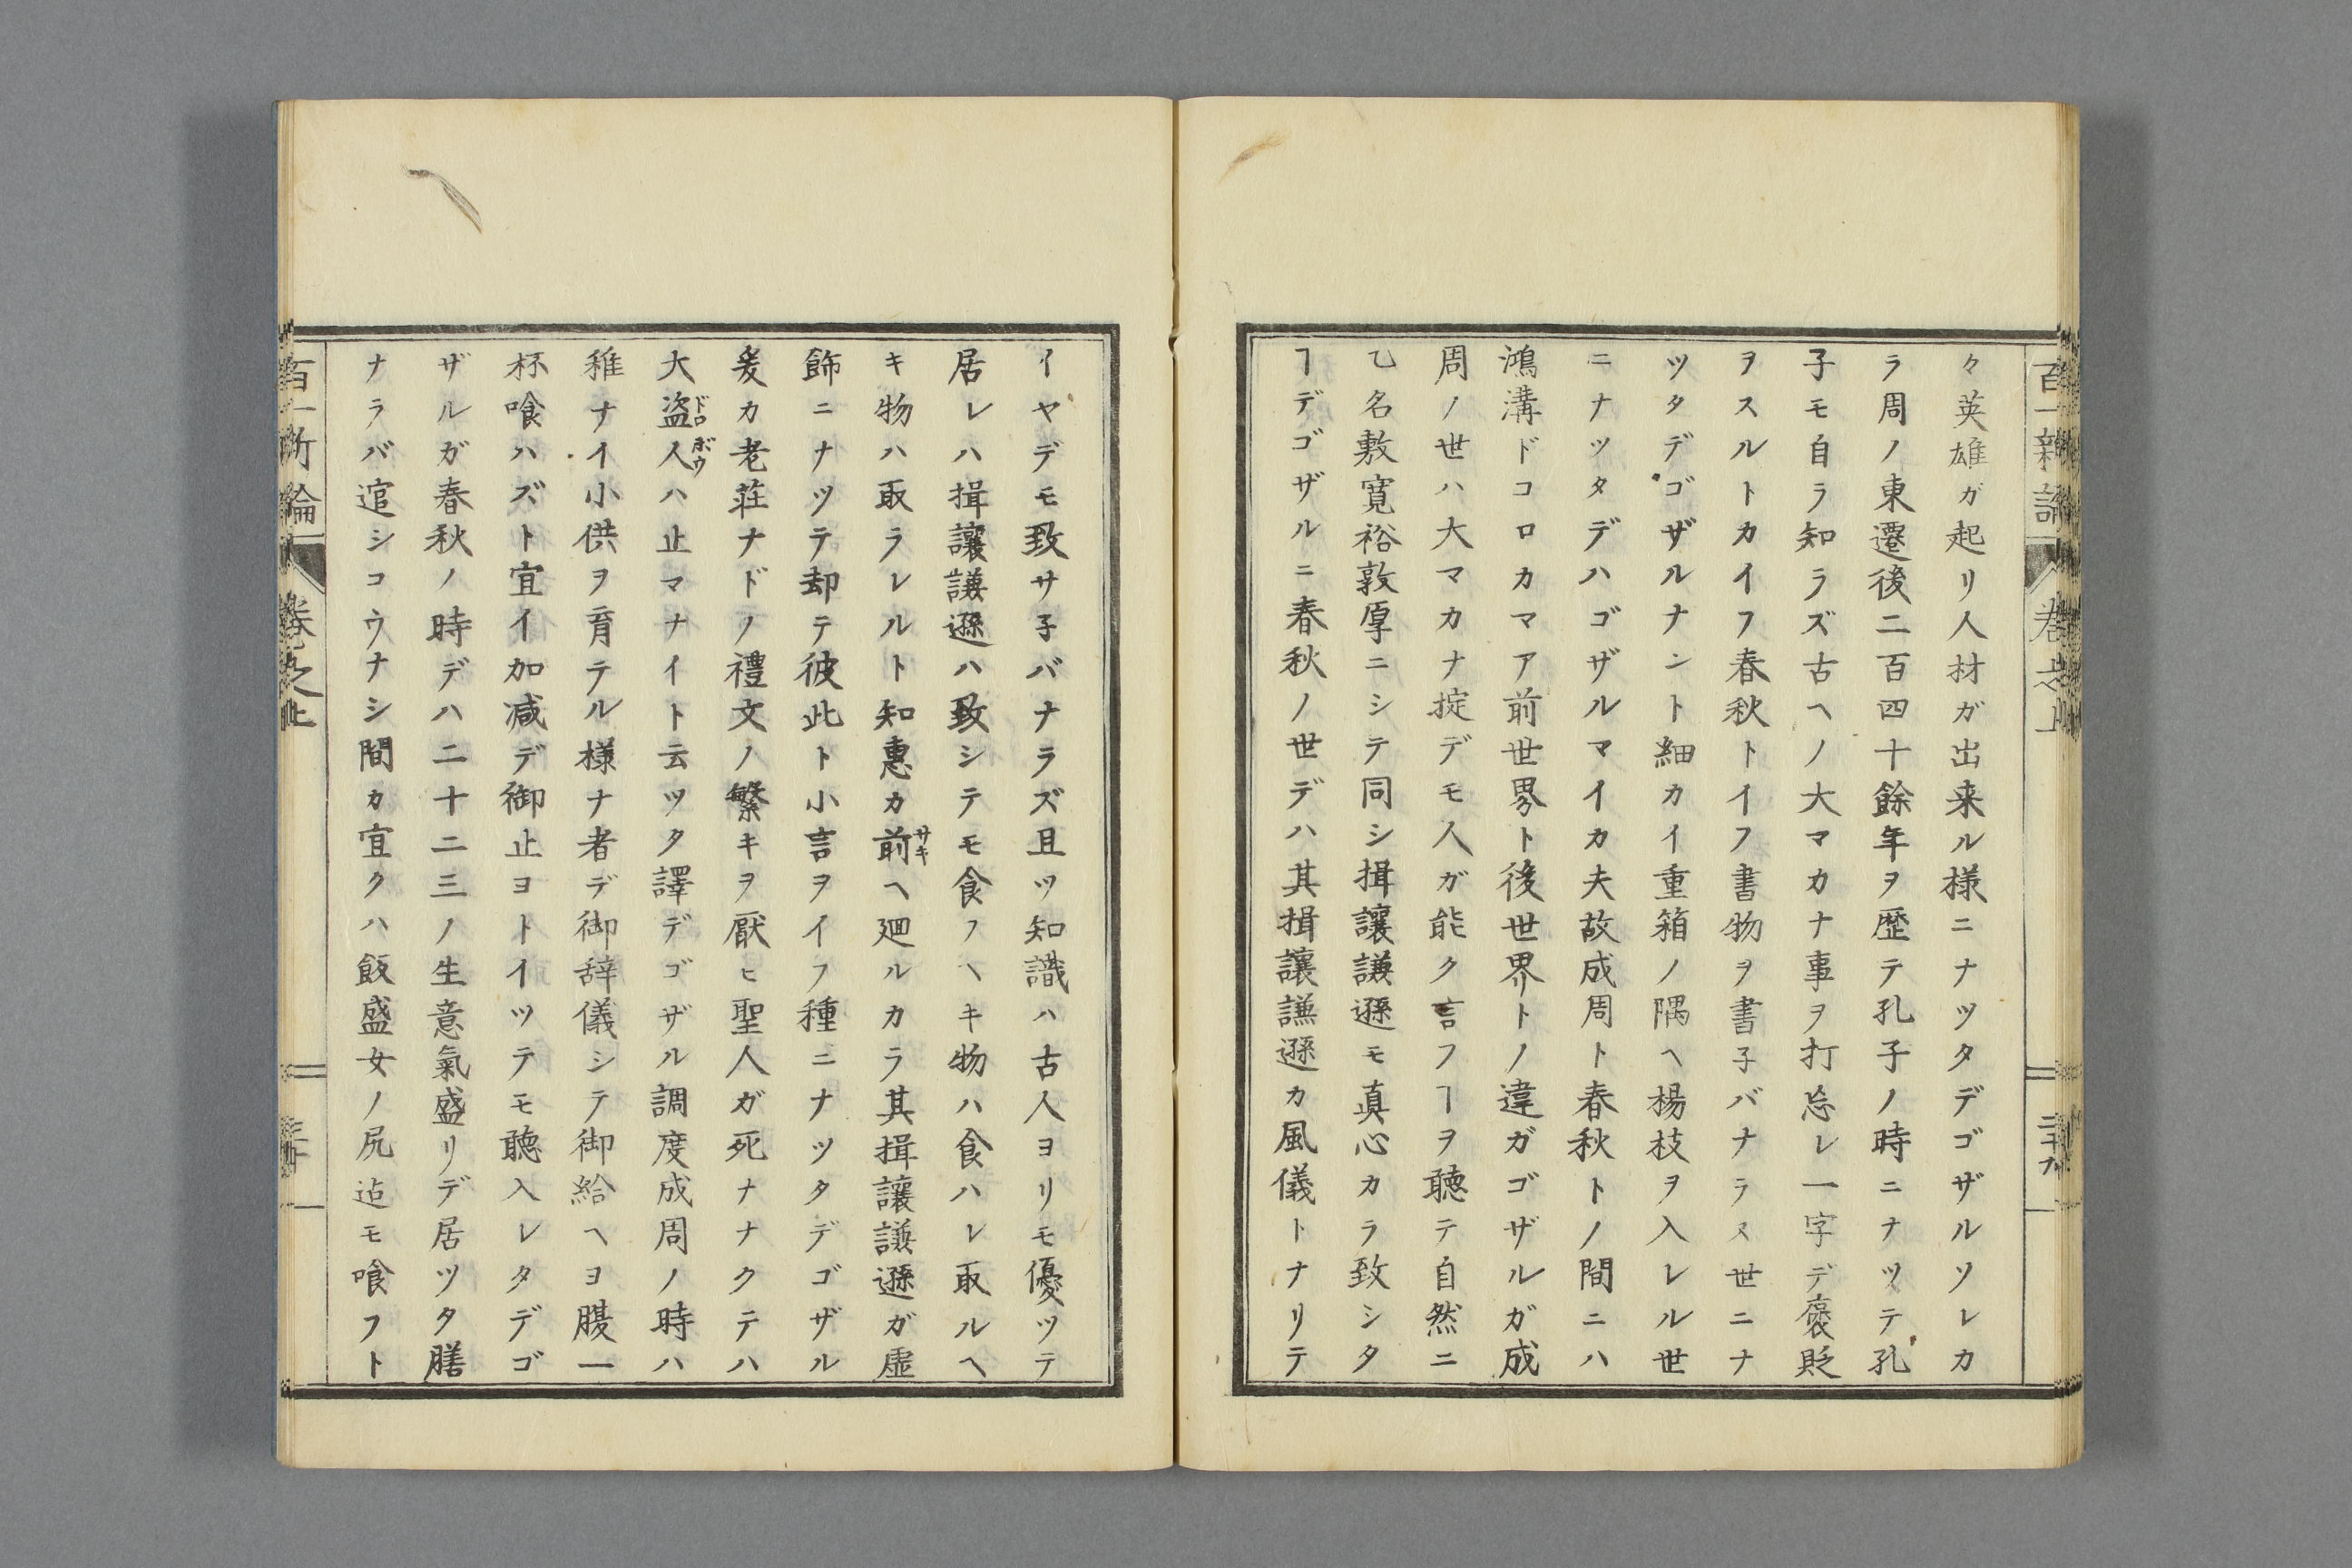 百一新論 卷之上 二十九
々英雄ガ起リ人材ガ出来ル様ニナツタデゴザルソレカ
ラ周ノ東遷後二百四十餘年ヲ歴テ孔子ノ時ニナツテ孔
子モ自ラ知ラズ古ヘノ大マカナ事ヲ打忘レ一字デ褒貶
ヲスルトカイフ春秋トイフ書物ヲ書子バナラヌ世ニナ
ツタデゴザルナント細カイ重箱ノ隅ヘ楊枝ヲ入レル世
ニナツタデハゴザルマイカ夫故成周ト春秋トノ間ニハ
鴻溝ドコロカマア前世界ト後世界トノ違ガゴザルガ成
周ノ世ハ大マカナ掟デモ人ガ能ク言フヿヲ聴テ自然ニ
乜名敷寛裕敦厚ニシテ同シ揖讓謙遜モ真心カラ致シタ
ヿデゴザルニ春秋ノ世デハ其揖讓謙遜カ風儀トナリテ
イヤデモ致サ子バナラズ且ツ知識ハ古人ヨリモ優ツテ
居レハ揖讓謙遜ハ致シテモ食フヘキ物ハ食ハレ取ルヘ
キ物ハ取ラレルト知惠カ前サキヘ廻ルカラ其揖讓謙遜ガ虚
飾ニナツテ却テ彼此ト小言ヲイフ種ニナツタデゴザル
爰カ老荘ナドノ禮文ノ繁キヲ厭ヒ聖人ガ死ナナクテハ
大盗人ドロボウハ止マナイト云ツタ譯デゴザル調度成周ノ時ハ
稚ナイ小供ヲ育テル様ナ者デ御辞儀シテ御給ヘヨ腹一
杯喰ハズト宜イ加減デ御止ヨトイツテモ聴入レタデゴ
ザルガ春秋ノ時デハ二十二三ノ生意氣盛リデ居ツタ膳
ナラバ逭シコウナシ間カ宜クハ飯盛女ノ尻迠モ喰フト
百一新論 卷之上 三十